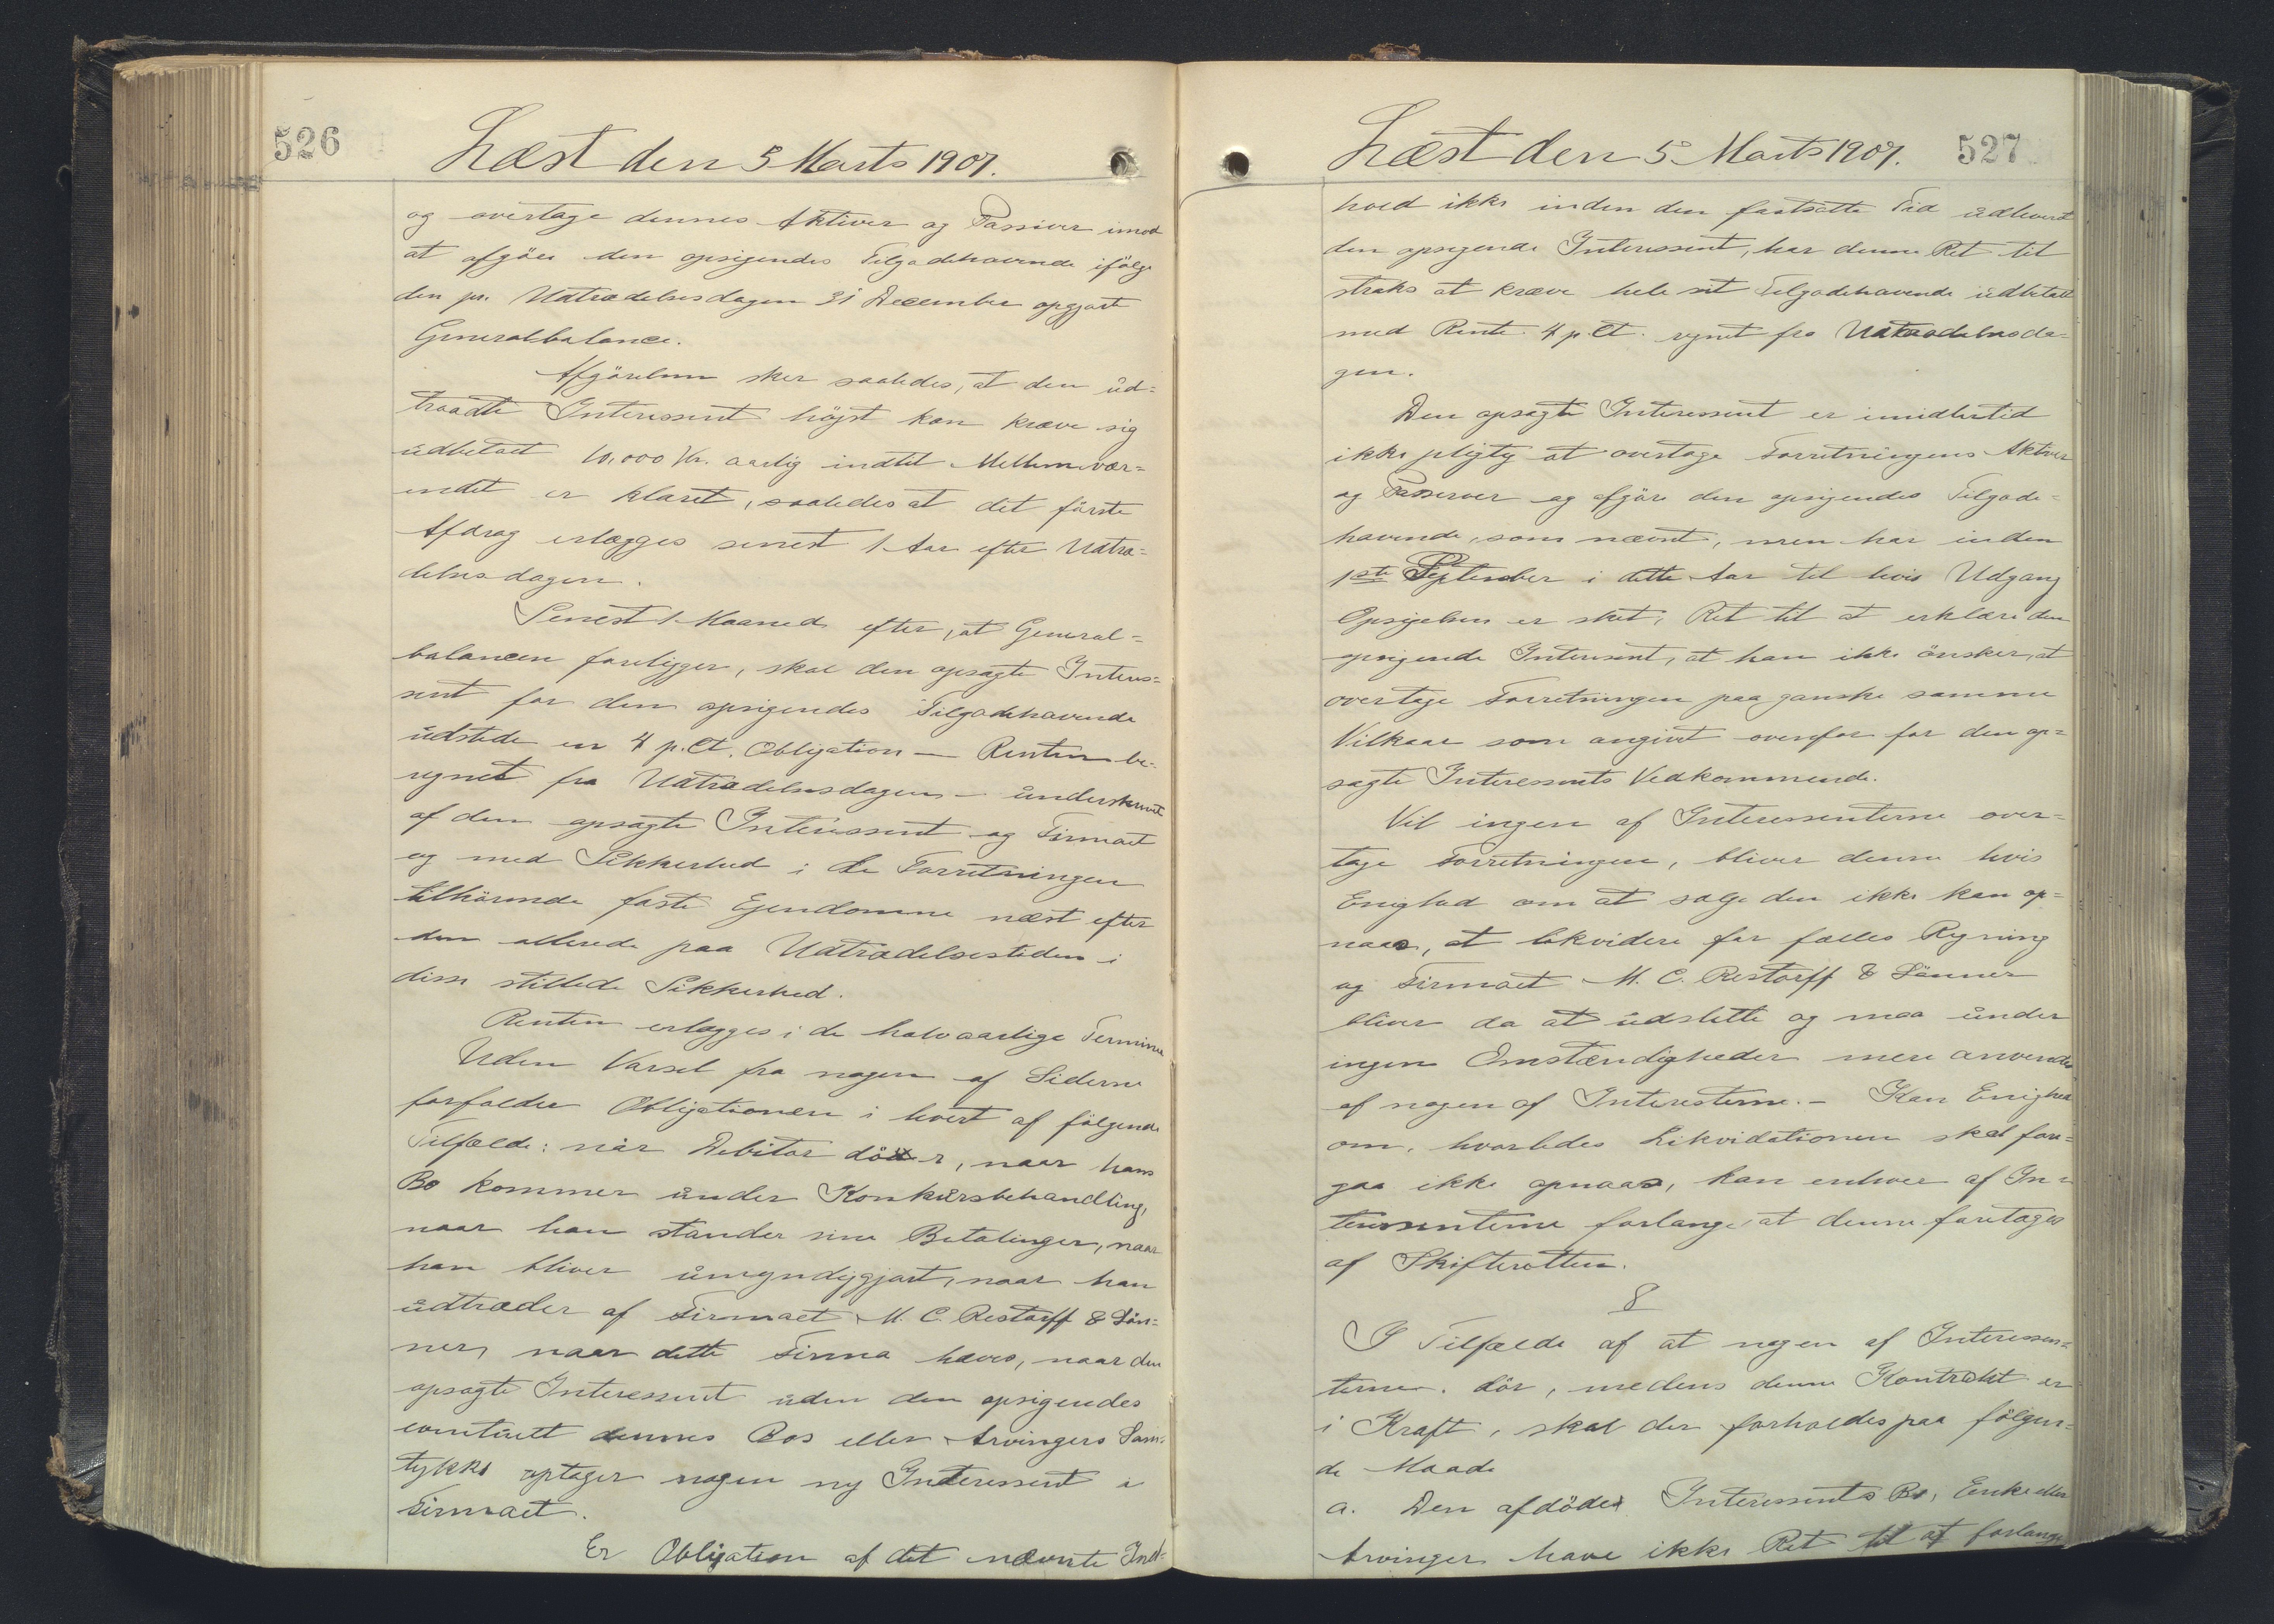 526
Læst den 5 Marts 1907.
og overtage dennes Aktiver og Passiver imod
at afgöre den opsigendes Tilgodehavende ifölge
den pr. Udtrædelsesdagen 31 December opgjort
Generalbalance.
Afgörelsen sker saaledes, at den ud=
traadte Interessent höjst kan kræve sig
udbetalt 10,000 Kr. aarlig indtil Mellemvær=
endet er klaret, saaledes at det förste
Afdrag erlægges senest 1 Aar efter Udtræ=
delsesdagen.
Senest 1 Maaned efter, at General=
balancen foreligger, skal den opsagte Interes=
sent for den opsigendes Tilgodehavende
udstede en 4 p.Ct. Obligation — Renten be-
regnet fra Udtrædelsesdagen — underskrevet
af den opsagte Interessent og Firmaet
og med Sikkerhed i de Forretningen
tilhörende faste Ejendomme næst efter
den allerede paa Udtrædelsestiden i
disse stillede Sikkerhed.
Renten erlægges i de halvaarlige Terminer
Uden Varsel fra nogen af Siderne
forfalder Obligationen i hvert af fölgende
Tilfælde: når Debitor dör, naar hans
Bo kommer under Konkursbehandling,
naar han standser sine Betalinger, naar
han bliver umyndiggjort, naar han
udtræder af Firmaet M. C. Restorff & Sön=
ner, naar dette Firma hæves, naar den
opsagte Interessent uden den opsigendes
eventuelt dennes Bos eller Arvingers Sam=
tykke optager nogen ny Interessent i
Firmaet.
Er Obligation af det nævnte Ind=
Læst den 5 Marts 1907. 527
hold ikke inden den fastsatte Tid udleveret
den opsigende Interessent, har denne Ret til
straks at kræve hele sit Tilgodehavende udbetalt
med Rente 4 p.Ct. regnet fra Udtrædelsesda=
gen.
Den opsagte Interessent er imidlertid
ikke pligtig at overtage Forretningens Aktiver
og Passiver og afgöre den opsigendes Tilgode=
havende, som nævnt, men har inden
1ste September i dette Aar til hvis Udgang
Opsigelsen er sket, Ret til at erklære den
opsigende Interessent, at han ikke önsker, at
overtage Forretningen paa ganske samme
Vilkaar som angivet ovenfor for den op=
sagte Interessents Vedkommende.
Vil ingen af Interessenterne over=
tage Forretningen, bliver denne hvis
Enighed om at sælge den ikke kan op=
naas, at likvidere for fælles Regning
og Firmaet M. C. Restorff & Sönner
bliver da at udslette og maa under
ingen Omstændigheder mere anvendes
af nogen af Interesterne. — Kan Enighed
om, hvorledes Likvidationen skal fore=
gaa ikke opnaas, kan enhver af In=
teressenterne forlange, at denne foretages
af Skifteretten.
8
I Tilfælde af at nogen af Interessen=
terne. dör, medens denne Kontrakt er
i Kraft, skal der forholdes paa fölgen=
de Maade
a. Den afdödes Interessents Bo, Enke eller
Arvinger have ikke Ret til at forlange